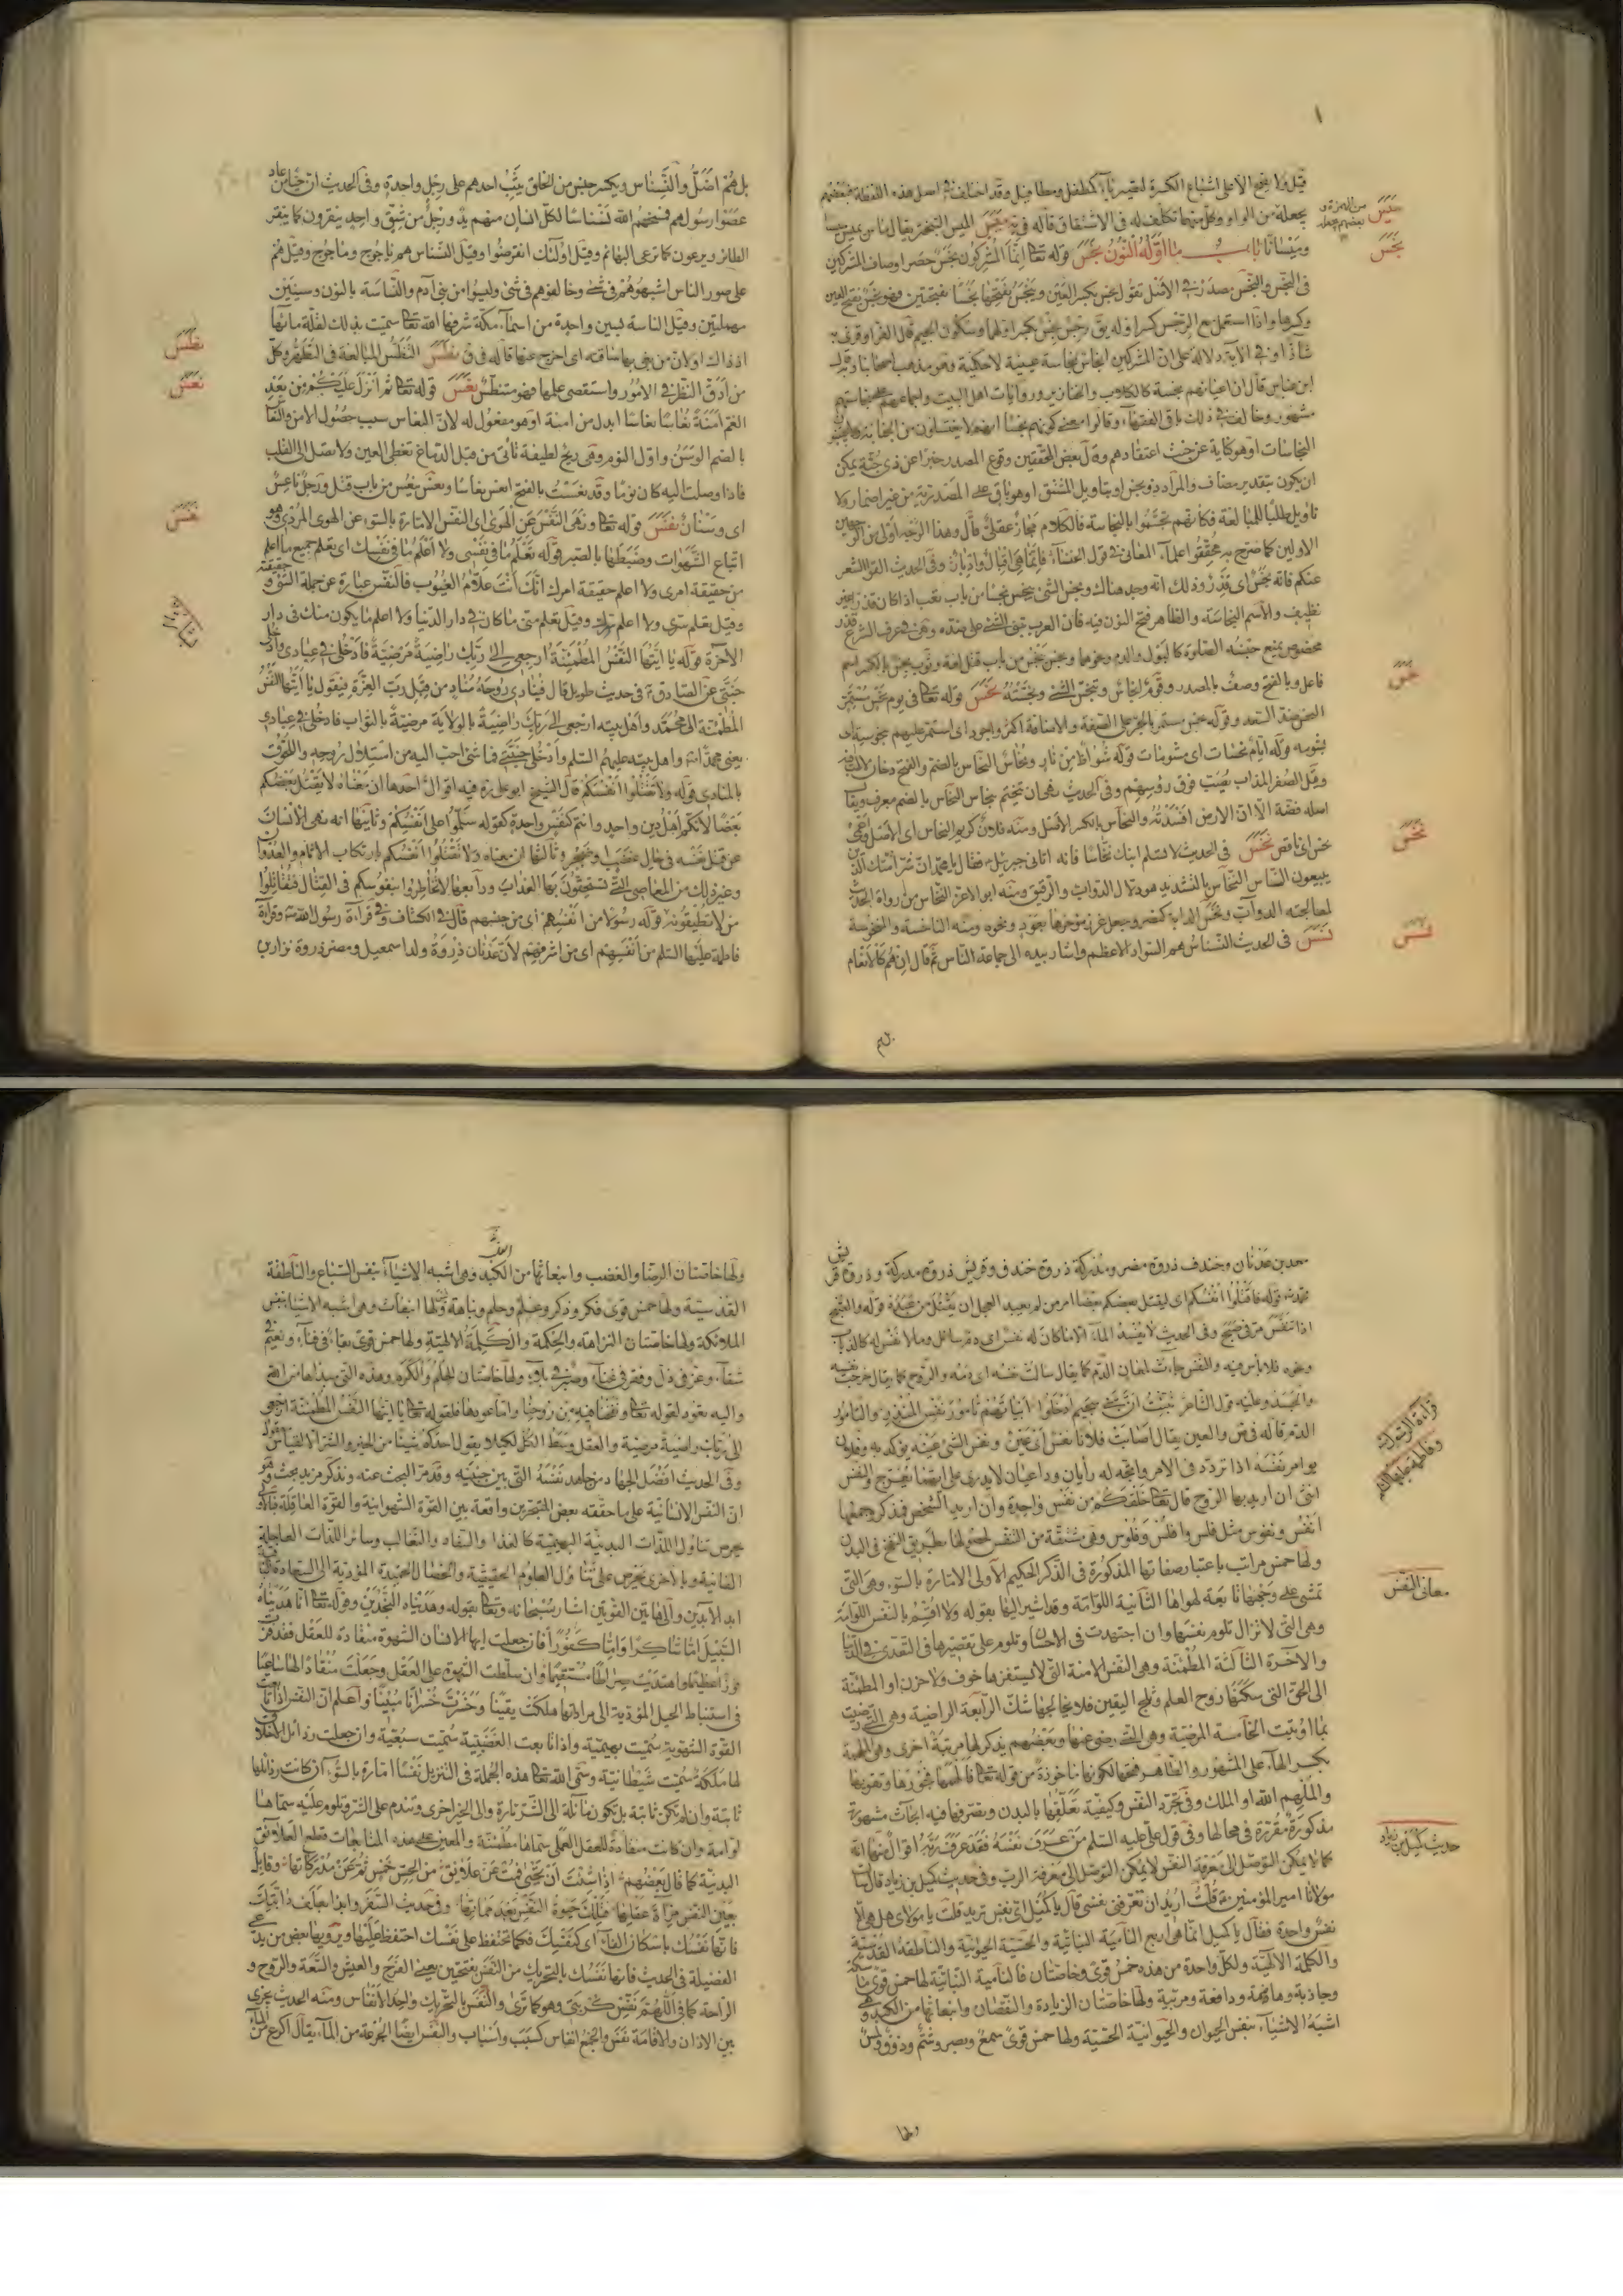 قيل ولا يفتح الا على اشباع الكسرة لتصير ياء كمطفل ومطافيل وقد اختلف في اصل هذه اللفظة فبعضهم
يجعله من الواو وكل منهما تكلف له في الاشتقاق قاله في يه ميس الميس التبختر يقال ماس يميس ميسا
وميسانا باب ما اوله النون نجس قوله تعالى انما المشركون نجس حصر اوصاف المشركين
في النجس والنجس مصدر في الاصل تقول نجس بكسر العين وينجس بفتحها نجسا بفتحتين فهو نجس بفتح العين
وكسرها واذا استعمل مع الرجس كسر اوله يق رجس نجس بكسر اولهما وسكون الجيم قال الفرا وقرئ به
شاذا وفي الآية دلالة على ان المشركين انجاس نجاسة عينية لا حكمية وهو مذهب اصحابنا وقول
ابن عباس قال ان اعيانهم نجسة كالكلاب والخنازير وروايات اهل البيت واجماعهم على نجاستهم
مشهور وخالف في ذلك باقي الفقهاء وقالوا معنى كونهم نجسا انهم لا يغتسلون من الجنابة ولا يجتنبون
النجاسات او هو كناية عن خبث اعتقادهم وقال بعض المحققين وقوع المصدر خبرا عن ذي جثة يمكن
ان يكون بتقدير مضاف والمراد ذو نجس او بتاويل المشتق او هو باق على المصدرية من غير اضمار ولا
تاويل طلبا للمبالغة فكانهم تجسموا بالنجاسة فالكلام مجاز عقلي قال وهذا الوجه اولى من الوجهين
الاولين كما صرح به محققوا علماء المعاني في قول الخنساء فانما هي اقبال وادبار وفي الحديث القوا الشعر
عنكم فانه نجس اي قذر وذلك انه وجد هناك ونجس الشئ ينجس نجسا من باب تعب اذا كان قذرا غير
نظيف والاسم النجاسة والظاهر فتح النون فيه فان العرب تبني الشئ على ضده وهي في عرف الشرع قذر
مخصوص يمنع جنسه الصلوة كالبول والدم ونحوهما ونجس ينجس من باب قتل لغة وثوب نجس بالكسر اسم
فاعل وبالفتح وصف بالمصدر وقوم انجاس وتنجس الشئ ونجسته نحس قوله تعالى في يوم نحس مستمر
النحس ضد السعد وقوله نحس مستمر بالجر على الصفة والاضافة اكثر واجود اي استمر عليهم بنحوسته اي
بشومه قوله ايام نحسات اي مشومات قوله شواظ من نار ونحاس النحاس بالضم والفتح دخان لا لهب فيه
وقيل الصفر المذاب يصب فوق رؤسهم وفي الحديث نهى ان يتختم بنحاس النحاس بالضم معروف ويقا
اصله فضة الا ان الارض افسدته والنحاس بالكسر الاصل ومنه فلان كريم النحاس اي الاصل
بخس اي ناقص نخس في الحديث لا تسلم ابنك نخاسا فانه اتاني جبرئيل فقال يا محمد ان شر امتك الذين
يبيعون الناس النخاس بالتشديد هو دلال الدواب والرقيق ومنه ابو الاعز النخاس من رواة الحديث
لمعالجته الدواب ونخس الدابة كنصر وجعل غرز مؤخرها بعود ونحوه ومنه الناخسة والمنخوسة
نسنس في الحديث النسناس هم السواد الاعظم واشار بيده الى جماعة الناس ثم قال ان هم كالانعام
ميس
من الهمزة و
بعضهم يجعله
نجس
نحس
نخس
نسنس
بل هم
بل هم اضل والنسناس ويكسر جنس من الخلق يثب احدهم على رجل واحدة وفي الحديث ان حيا من عاد
عصوا رسولهم فمسخهم الله نسناسا لكل انسان منهم يد ورجل من شق واحد ينقرون كما ينقر
الطائر ويرعون كما ترعى البهائم وقيل اولئك انقرضوا وقيل النسناس هم ياجوج وماجوج وقيل هم
على صور الناس اشبهوهم في شئ وخالفوهم في شئ وليسوا من بني آدم والناسة بالنون وسينين
مهملتين وقيل الناسة لسين واحدة من اسماء مكة شرفها الله تعالى سميت بذلك لقلة مائها
اذ ذاك اولان من بغى بها ساقته اي اخرج عنها قاله في ق نطس التنطس المبالغة في التطهر وكل
من ادق النظر في الامور واستقصى علمها فهو متنطس نعس قوله تعالى ثم انزل عليكم من بعد
الغم امنة نعاسا نعاسا ابدل من امنة او هو مفعول له لان النعاس سبب حصول الامن والنعاس
بالضم الوسن واول النوم وهي ريح لطيفة تاتي من قبل الدماغ تغطي العين ولا تصل الى القلب
فاذا وصلت اليه كان نوما وقد نعست بالفتح انعس نعاسا ونعس ينعس من باب قتل ورجل ناعس
اي وسنان نفس قوله تعالى ونهى النفس عن الهوى اي النفس الامارة بالسوء عن الهوى المردي وهو
اتباع الشهوات وضبطها بالصبر قوله تعلم ما في نفسي ولا اعلم ما في نفسك اي تعلم جميع ما اعلم
من حقيقة امري ولا اعلم حقيقة امرك انك انت علام الغيوب فالنفس عبارة عن جملة الشئ و حقيقته
وقيل تعلم سري ولا اعلم سرك وقيل تعلم مني ما كان في دار الدنيا ولا اعلم ما يكون منك في دار
الآخرة قوله يا ايتها النفس المطمئنة ارجعي الى ربك راضية مرضية فادخلي في عبادي وادخلي
جنتي عن الصادق ع في حديث طويل قال فينادي روحه مناد من قبل رب العزة فيقول يا ايتها النفس
المطمئنة الى محمد واهل بيته ارجعي الى ربك راضية بالولاية مرضية بالثواب فادخلي في عبادي
يعني محمدا واهل بيته عليهم السلم وادخلي جنتي فما شئ احب اليه من استلال روحه واللحوق
بالمنادي قوله ولا تقتلوا انفسكم قال الشيخ ابو علي ره فيه اقوال احدها ان معناه لا يقتل بعضكم
بعضا لانكم اهل دين واحد وانتم كنفس واحدة كقوله سلموا على انفسكم وثانيها انه نهى الانسان
عن قتل نفسه في حال غضب او ضجر وثالثها ان معناه ولا تقتلوا انفسكم بارتكاب الاثام والعدوان
وغير ذلك من المعاصي التي تستحقون بها العذاب ورابعها لا تخاطروا بنفوسكم في القتال فتقاتلوا
من لا تطيقونه قوله رسولا من انفسهم اي من جنسهم قال في الكشاف وفي قراءة رسول الله ص وقراءة
فاطمة عليها السلم من انفسهم اي من اشرفهم لان عدنان ذروة ولد اسمعيل ومضر ذروة نزار بن
نطس
نعس
نفس
معد بن عدنان وخندف ذروة مضر ومدركة ذروة خندف وقريش ذروة مدركة وذروة قريش
محمد ص قوله فاقتلوا انفسكم اي ليقتل بعضكم بعضا امر من لم يعبد العجل ان يقتل من عبده قوله والصبح
اذا تنفس مر في صبح وفي الحديث لا يفسد الماء الا ما كان له نفس اي دم سائل وما لا نفس له كالذباب
ونحوه فلا باس فيه والنفس جاءت لمعان الدم كما يقال سالت نفسه اي دمه والروح كما يقال خرجت نفسه
والجسد وعليه قول الشاعر نبئت ان بني سحيم ادخلوا ابياتهم تامور نفس المنذر والتامور
الدم قاله في ص والعين يقال اصابت فلانا نفس اي عين ونفس الشئ عينه يؤكد به وفلان
يوامر نفسه اذا تردد في الامر واتجه له رايان وداعيان لا يدري على ايهما يعرج والنفس
انثى ان اريد بها الروح قال تعالى خلقكم من نفس واحدة وان اريد الشخص فمذكر وجمعها
انفس ونفوس مثل فلس وافلس وفلوس وهي مشتقة من النفس لحصولها بطريق النفخ في البدن
ولها خمس مراتب باعتبار صفاتها المذكورة في الذكر الحكيم الاولى الامارة بالسوء وهي التي
تمشي على وجهها تابعة لهواها الثانية اللوامة وقد اشير اليها بقوله ولا اقسم بالنفس اللوامة
وهي التي لا تزال تلوم نفسها وان اجتهدت في الاحسان وتلوم على تقصيرها في التعدي في الدنيا
والآخرة الثالثة المطمئنة وهي النفس الامنة التي لا يستفزها خوف ولا حزن او المطمئنة
الى الحق التي سكنها روح العلم وثلج اليقين فلا يخالجها شك الرابعة الراضية وهي التي رضيت
بما اوتيت الخامسة المرضية وهي التي رضي عنها وبعضهم يذكر لها مرتبة اخرى وهي الملهمة
بكسر الهاء على المشهور والظاهر فتحها لكونها ماخوذة من قوله تعالى فالهمها فجورها وتقويها
والملهم الله او الملك وفي تجرد النفس وكيفية تعلقها بالبدن وتصرفها فيه ابحاث مشهورة
مذكورة مقررة في محالها وفي قول علي عليه السلم من عرف نفسه فقد عرف ربه اقوال منها انه
كما لا يمكن التوصل الى معرفة النفس لا يمكن التوصل الى معرفة الرب وفي حديث كميل بن زياد قال سالت
مولانا امير المؤمنين ع قلت اريد ان تعرفني نفسي قال يا كميل اي نفس تريد قلت يا مولاي هل هي الا
نفس واحدة فقال يا كميل انما هي اربع النامية النباتية والحسية الحيوانية والناطقة القدسية
والكلمة الالهية ولكل واحدة من هذه خمس قوى وخاصتان فالنامية النباتية لها خمس قوى ماسكة
وجاذبة وهاضمة ودافعة ومربية ولها خاصتان الزيادة والنقصان وانبعاثها من الكبد وهي
اشبه الاشياء بنفس الحيوان والحيوانية الحسية ولها خمس قوى سمع وبصر وشم وذوق ولمس
قراءة الرسول ص
وفاطمة عليها السلم
معاني النفس
حديث كميل بن زياد
ولها
ولها خاصتان الرضا والغضب وانبعاثها من الكبد وهي اشبه الاشياء بنفس السباع والناطقة
القدسية ولها خمس قوى فكر وذكر وعلم وحلم ونباهة وليس لها انبعاث وهي اشبه الاشياء بنفس
الملائكة ولها خاصتان النزاهة والحكمة والكلمة الالهية ولها خمس قوى بقاء في فناء ونعيم في
شقاء وعز في ذل وفقر في غناء وصبر في بلاء ولها خاصتان الحلم والكرم وهذه التي مبداها من الله
واليه تعود لقوله تعالى ونفخنا فيه من روحنا واما عودها فلقوله تعالى يا ايتها النفس المطمئنة ارجعي
الى ربك راضية مرضية والعقل وسط الكل لكيلا يقول احدكم شيئا من الخير والشر الا لقياس معقول
وفي الحديث افضل الجهاد من جاهد نفسه التي بين جنبيه وقد مر البحث عنه ونذكر مزيد بحث هو
ان النفس الانسانية على ما حققه بعض المتبحرين واقعة بين القوة الشهوانية والقوة العاقلة فبالاولى
يحرص تناول اللذات البدنية البهيمية كالغذا والسفاد والتغالب وسائر اللذات العاجلة
الفانية وبالاخرى يحرص على تناول العلوم الحقيقية والخصال الحميدة المؤدية الى السعادة الباقية
ابد الآبدين والى هاتين القوتين اشار سبحانه وتعالى بقوله وهديناه النجدين وقوله تعالى انا هديناه
السبيل اما شاكرا واما كفورا فان جعلت ايها الانسان الشهوة منقادة للعقل فقد فزت
فوزا عظيما واهتديت صراطا مستقيما وان سلطت الشهوة على العقل وجعلته منقادا لها ساعيا
في استنباط الحيل المؤدية الى مراداتها هلكت يقينا وخسرت خسرانا مبينا واعلم ان النفس اذا تابعت
القوة الشهوية سميت بهيمية واذا تابعت الغضبية سميت سبعية وان جعلت رذائل الاخلاق
لها ملكة سميت شيطانية وسمى الله تعالى هذه الجملة في التنزيل نفسا امارة بالسوء ان كانت رذائلها
ثابتة وان لم تكن ثابتة بل تكون مائلة الى الشر تارة والى الخير اخرى وتندم على الشر وتلوم عليه سماها
لوامة وان كانت منقادة للعقل العملي سماها مطمئنة والمعين على هذه المتابعات قطع العلائق
البدنية كما قال بعضهم اذا شئت ان تحيى فمت عن علائق من الحس خمس ثم عن مدركاتها وقابل
بعين النفس مرآة عقلها فتلك حيوة النفس بعد مماتها وفي حديث السفر وابدا بعلف دابتك
فانها نفسك باسكان الفاء اي كنفسك فكما تحتفظ على نفسك احتفظ عليها ويرويها بعض من يدعي
الفضيلة في الحديث فانها نفسك بالتحريك من النفس بفتحتين بمعنى الفرج والعيش والسعة والروح و
الراحة كما في اللهم نفس كربتي وهو كما ترى والنفس بالتحريك واحد الانفاس ومنه الحديث يجزي
بين الاذان والاقامة نفس والجمع انفاس كسبب واسباب والنفس ايضا الجرعة من الماء يقال اكرع من